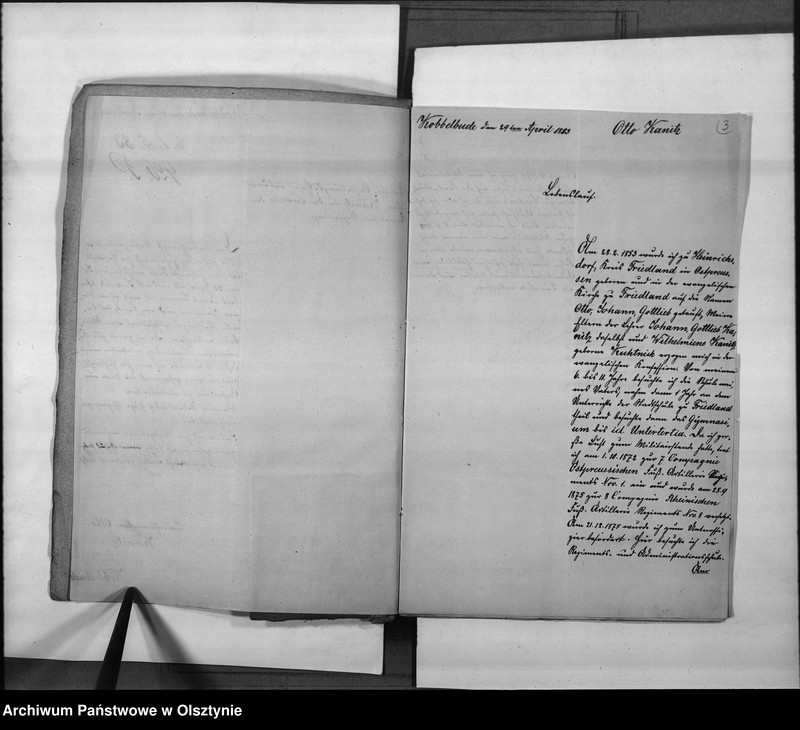 Kobbelbude den 29ten April 1883
Otto Kanitz
3
Lebenslauf.
Am 28.2.1853 wurde ich zu Heinrichs-
dorf, Kreis Friedland in Ostpreus-
sen geboren und in der evangelischen
Kirche zu Friedland auf die Namen
Otto, Johann, Gottlieb getauft, Meine
Eltern der Lehrer Johann, Gottlieb Ka-
nitz daselbst und Wilhelmiene Kanitz
geborne Kuhtnick erzogen mich in der
evangelischen Konfession. Von meinem
6. bis 11. Jahre besuchte ich die Schule mei-
nes Vaters, nahm dann 1 Jahr an dem
Unterrichte der Stadtschule zu Friedland
theil und besuchte dann das Gÿmnasi-
um bis Untertertia. Da ich gro-
ße Lust zum Militairstande hatte, trat
ich am 1.10.1872 zur 7 Compagnie
Ostpreussischen Fuß. Artillerie Regi-
ments Nro. 1. ein und wurde am 28.9
1875 zur 8 Compagnie Rheinischen
Fuß. Artillerie Regiments Nro. 8 versetzt.
Am 21.12.1875 wurde ich zum Unteroffi-
zier befördert. Hier besuchte ich die
Regiments- und Administrationsschule.
Am
Archiwum Państwowe w Olsztynie